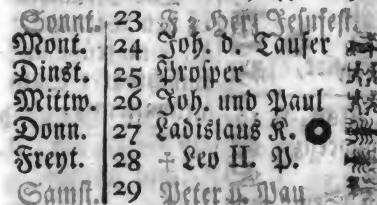 Sonnt. 23 F 2 Herz Jesufest.
Mont. 24 Joh. d. Taufer
Dinst. 25 Prosper
Mittw. 26 Joh. und Paul
Donn. 27 Ladislaus K.
Freyt. 28 † Leo II. P.
Samst. 29 Peter u. Pau